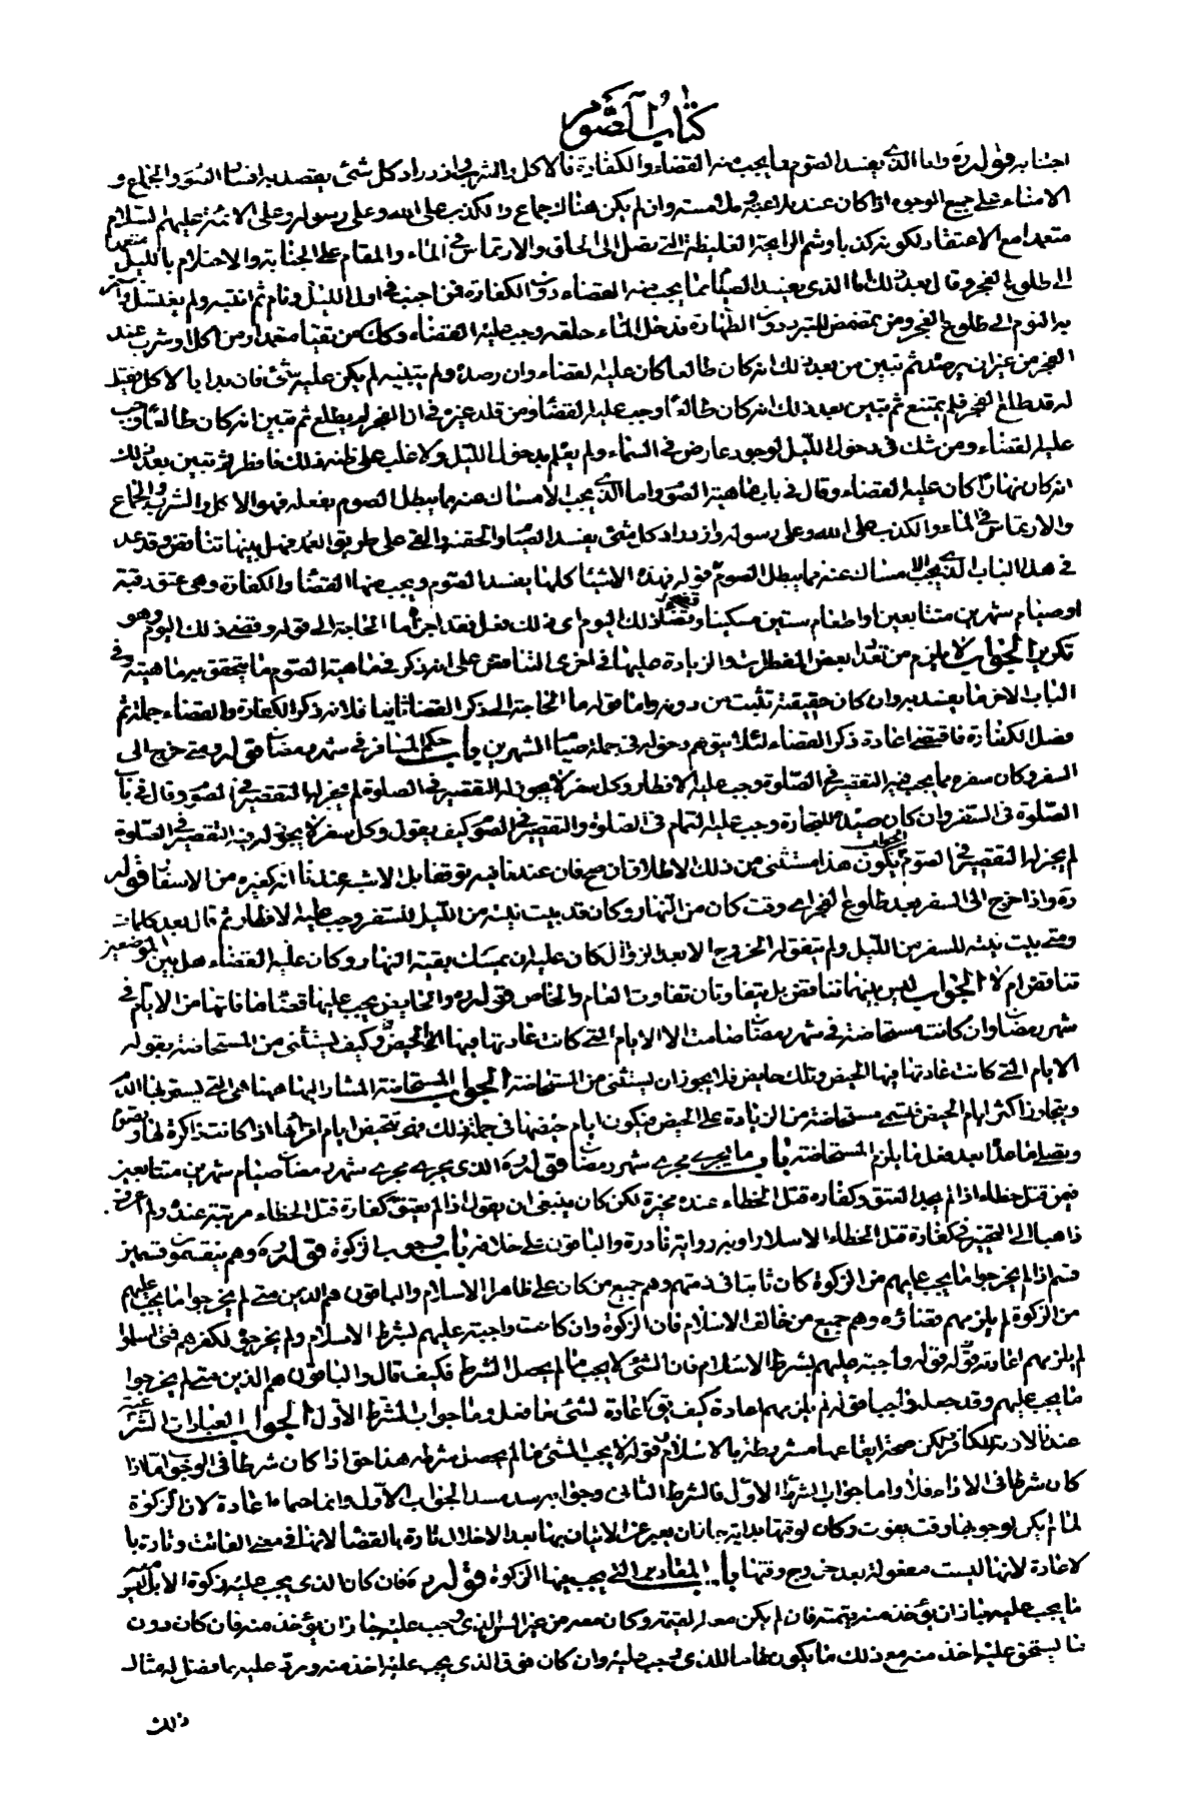 كتاب الصوم
اجتنابه قوله ره واما الذي يفسد الصوم مما يجب منه القضاء والكفارة فالاكل والشرب وازدراد كل شئ يقصد به افساد الصوم والجماع و
الامناء على جميع الوجوه اذا كان عند ملاعبة وملامسة وان لم يكن هناك جماع والكذب على الله وعلى رسوله وعلى الائمة عليهم السلام
متعمدا مع الاعتقاد لكونه كذبا وشم الرايحة الغليظة التي تصل الى الحلق والارتماس في الماء والمقام على الجنابة والاحتلام بالليل متعمدا
الى طلوع الفجر وقال بعد ذلك فاما الذي يفسد الصيام مما يجب منه القضاء دون الكفارة فمن اجنب في اول الليل ونام ثم انتبه ولم يغتسل
به النوم الى طلوع الفجر ومن تمضمض للتبرد دون الطهارة فدخل الماء حلقه وجب عليه القضاء وكذلك من تقيا متعمدا ومن اكل او شرب عند
الفجر من غير ان يرصده ثم تبين من بعد ذلك انه كان طالعا كان عليه القضاء وان رصده ولم يتبينه لم يكن عليه شئ فان بدا بالاكل فقيل
له قد طلع الفجر فلم يمتنع ثم تبين بعد ذلك انه كان طالعا وجب عليه القضاء ومن قلد غيره في ان الفجر لم يطلع ثم تبين انه كان طالعا وجب
عليه القضاء ومن شك في دخول الليل لوجود عارض في السماء ولم يعلم بدخول الليل ولا غلب على ظنه ذلك فافطر ثم تبين بعد ذلك
انه كان نهارا كان عليه القضاء وقال في باب ماهية الصوم واما الذي يجب الامساك عنه مما يبطل الصوم بفعله فهو الاكل والشرب والجماع
والارتماس في الماء والكذب على الله وعلى رسوله وازدراد كل شئ يفسد الصيام والحقنة والقئ على طريق العمد فهل بينهما تناقض وقد عد
في هذا الباب الذي يجب الامساك عنه مما يبطل الصوم قوله فهذه الاشياء كلها يفسد الصوم ويجب منها القضاء والكفارة وهي عتق رقبة
او صيام شهرين متتابعين او اطعام ستين مسكينا وقضاء ذلك اليوم اي ذلك فعل فقد اجزأه ما الحاجة الى قوله وقضى ذلك اليوم وهو
تكرير الجواب لا يلزم من تعداد بعض المفطرات والزيادة عليها في اخرى التناقض على انه ذكر في ماهية الصوم ما يتحقق به ماهيته وفي
الباب الاخر ما يفسد به وان كان حقيقته تثبت من دونه واما قوله ما الحاجة الى ذكر القضاء ثانيا فلانه ذكر الكفارة والقضاء جملة ثم
فصل الكفارة فاقتضى اعادة ذكر القضاء لئلا يتوهم دخوله في جملة صيام الشهرين باب حكم المسافر في شهر رمضان قوله ومتى خرج الى
السفر وكان سفره مما يجب فيه التقصير في الصلوة وجب عليه الافطار وكل سفر لا يجوز له التقصير في الصلوة لم يجز له التقصير في الصوم وقال في باب
الصلوة في السفر وان كان صيده للتجارة وجب عليه التمام في الصلوة والتقصير في الصوم كيف يقول وكل سفر لا يجوز له فيه التقصير في الصلوة
لم يجز له التقصير في الصوم الجواب يكون هذا مستثنى من ذلك الاطلاق ان صح فان عندنا فيه توقفا بل الاشبه عندنا انه كغيره من الاسفار قوله
ره واذا خرج الى السفر بعد طلوع الفجر اي وقت كان من النهار وكان قد بيت نيته من الليل للسفر وجب عليه الافطار ثم قال بعد كلمات
ومتى بيت نيته للسفر من الليل ولم يتفق له الخروج الا بعد الزوال كان عليه ان يمسك بقية النهار وكان عليه القضاء هل بين الموضعين
تناقض ام لا الجواب ليس بينهما تناقض بل يتفاوتان تفاوت العام والخاص قوله ره والحايض يجب عليها قضاء ما فاتها من الايام في
شهر رمضان وان كانت مستحاضة في شهر رمضان صامت الا الايام التي كانت عادتها فيها الحيض وكيف يستثنى من المستحاضة بقوله
الايام التي كانت عادتها فيها الحيض وتلك حايض فلا يجوز ان يستثنى من المستحاضة الجواب المستحاضة المشار اليها ههنا هي التي يستمر بها الدم
ويتجاوز اكثر ايام الحيض فتسمى مستحاضة من الزيادة على الحيض فيكون ايام حيضها في جملة ذلك فهي تتحيض ايام اقرائها اذا كانت ذاكرة لها و تصوم
وتصلي ما عدا بعد فعل ما يلزم المستحاضة باب ما يجري مجرى شهر رمضان قوله ره الذي يجري مجرى شهر رمضان صيام شهرين متتابعين
فيمن قتل خطاء اذا لم يجد العتق وكفارة قتل الخطاء عنده مخيرة لكن كان ينبغي ان يقول اذا لم يعتق كفارة قتل الخطاء مرتبة عنده ولم اعرف
ذاهبا الى التخيير في كفارة قتل الخطاء الا سلار او فيه رواية نادرة والباقون على خلافه باب وجوب الزكوة قوله ره وهم ينقسمون قسمين
قسم اذا لم يخرجوا ما يجب عليهم من الزكوة كان ثابتا في ذمتهم وهم جميع من كان على ظاهر الاسلام والباقون هم الذين متى لم يخرجوا ما يجب عليهم
من الزكوة لم يلزمهم قضاؤه وهم جميع من خالف الاسلام فان الزكوة وان كانت واجبة عليهم بشرط الاسلام ولم يخرجوها لكفرهم فمتى اسلموا
لم يلزمهم اعادته وقوله واجبة عليهم بشرط الاسلام فان الشئ لا يجب ما لم يحصل الشرط فكيف قال والباقون هم الذين متى لم يخرجوا
ما يجب عليهم وقد جعله واجبا قوله لم يلزمهم اعادة كيف يتق اعادة لشئ ما فعل وما جواب الشرط الاول الجواب العبادات الشرعية
عندنا لازمة للكافر لكن صحة ايقاعها مشروطة بالاسلام قوله لا يجب الشئ ما لم يحصل شرطه هذا حق اذا كان شرطا في الوجوب اما اذا
كان شرطا في الاداء فلا واما جواب الشرط الاول فالشرط الثاني وجوابه يسد مسد الجواب الاول وانما سماها اعادة لان الزكوة
لما لم يكن لوجوبها وقت يفوت وكان لوقتها بداية جاز ان يعبر عن الاتيان بها بعد الاخلال تارة بالقضاء لانها في معنى الفائت وتارة با
لاعادة لانها ليست مفعولة بعد خروج وقتها باب المقادير التي يجب فيها الزكوة قوله ره فان كان الذي يجب عليه زكوة الابل ليس
ما يجب عليه جاز ان يؤخذ منه بقيمته فان لم يكن معه القيمة وكان معه من غير السن الذي وجب عليه جاز ان يؤخذ منه فان كان دون
ما يستحق عليه اخذ منه مع ذلك ما يكون تماما للذي وجب عليه وان كان فوق الذي يجب عليه اخذ منه ورد عليه بما فضل له مثال
ذلك